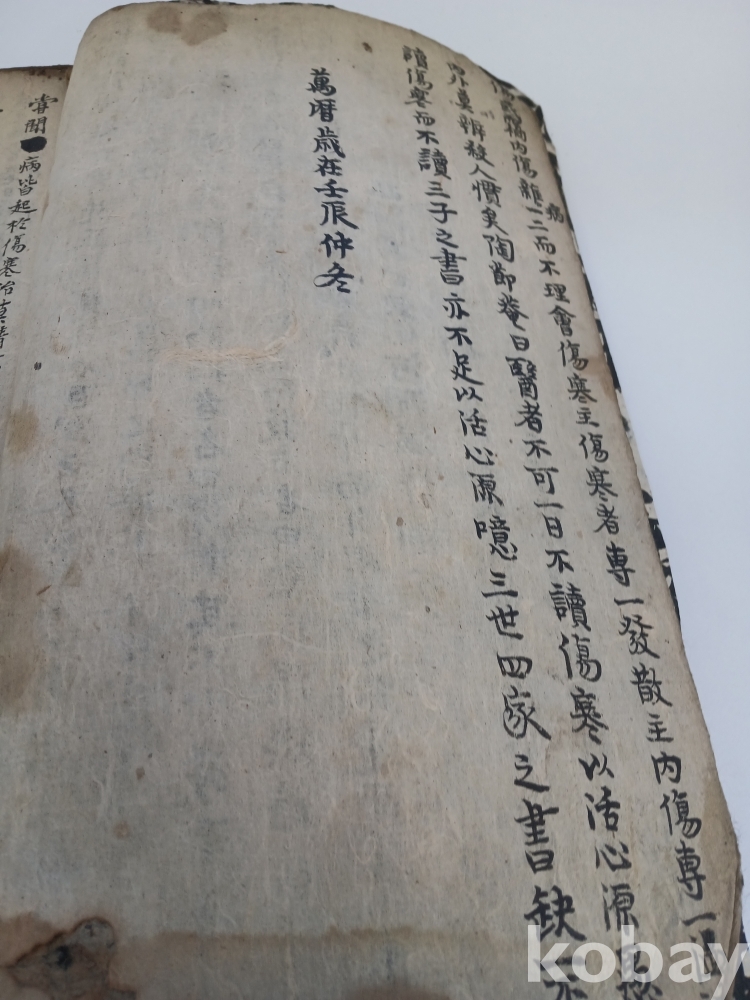 病
內傷雜一二而不理會傷寒主傷寒者專一發散主內傷專一
內外莫辨殺人慣矣陶節菴曰醫者不可一日不讀傷寒以活心源
讀傷寒而不讀三子之書亦不足以活心源噫三世四家之書缺一不
萬曆歲在壬辰仲冬
嘗聞 病皆起於傷寒治
kobay